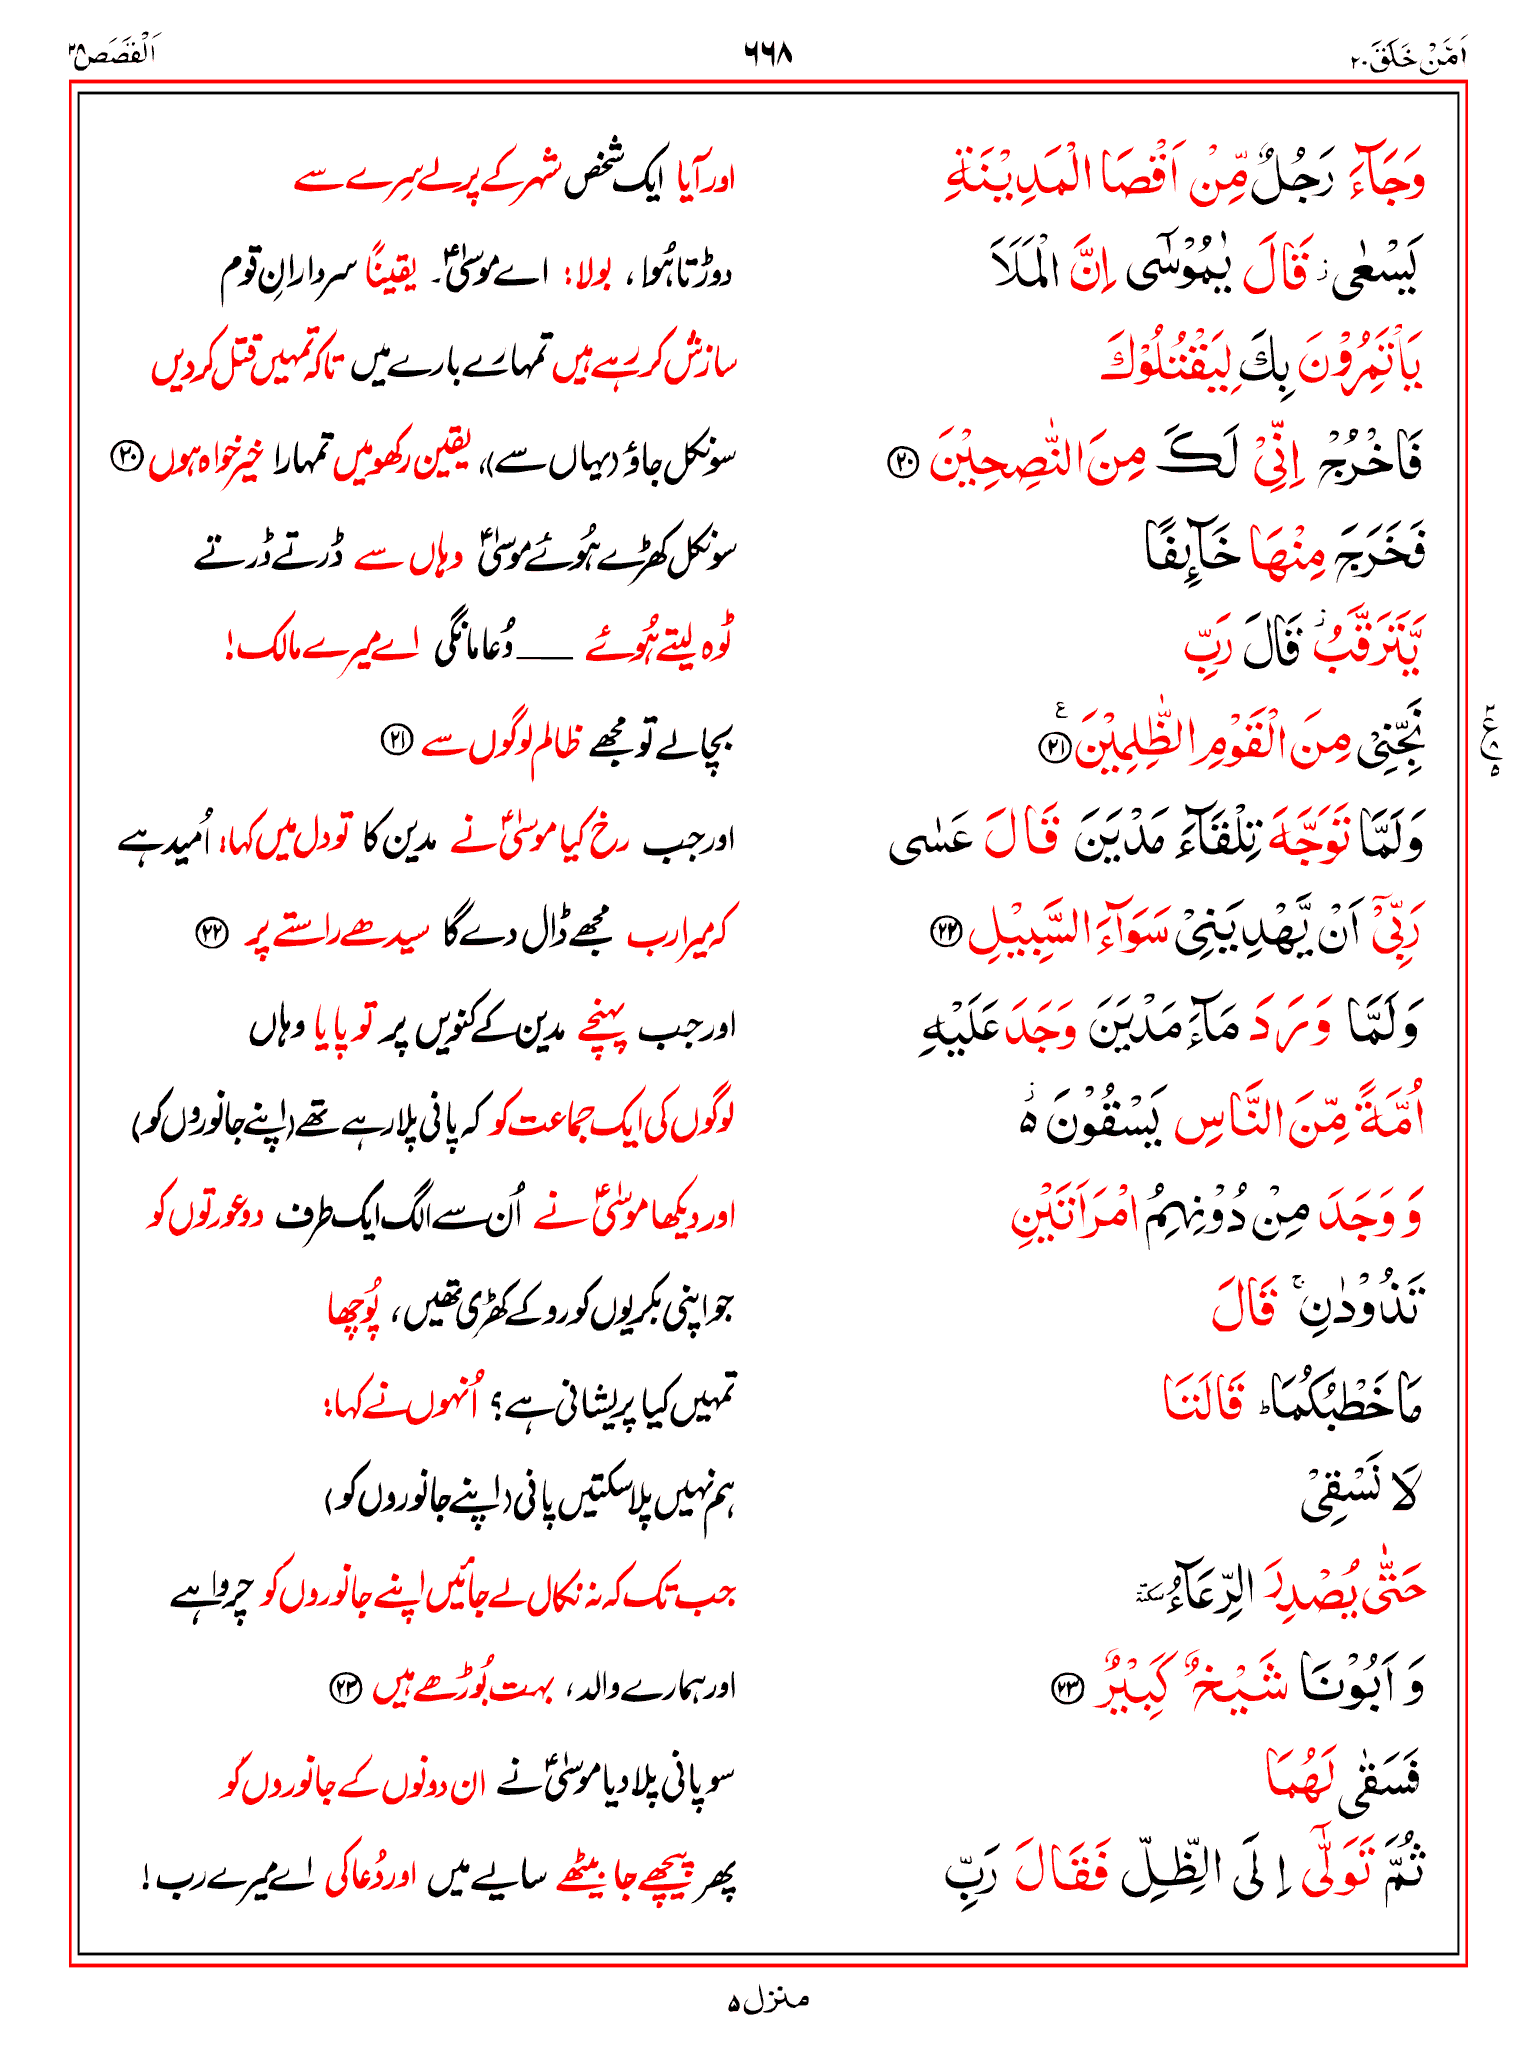 اَمَّنْ خَلَقَ ۲۰ ۶۶۸ اَلْقَصَص ۲۸
وَجَآءَ رَجُلٌ مِّنْ اَقْصَا الْمَدِيْنَةِ اور آیا ایک شخص شہر کے پرلے سِرے سے
يَسْعٰى ز قَالَ يٰمُوْسٰٓى اِنَّ الْمَلَاَ دوڑتا ہُوا، بولا: اے موسیٰؑ۔ یقیناً سردارانِ قوم
يَاْتَمِرُوْنَ بِكَ لِيَقْتُلُوْكَ سازش کر رہے ہیں تمہارے بارے میں تاکہ تمہیں قتل کر دیں
فَاخْرُجْ اِنِّىْ لَكَ مِنَ النّٰصِحِيْنَ ۲۰ سو نکل جاؤ (یہاں سے)، یقین رکھو میں تمہارا خیر خواہ ہوں ۲۰
فَخَرَجَ مِنْهَا خَآئِفًا سو نکل کھڑے ہُوئے موسیٰؑ وہاں سے ڈرتے ڈرتے
يَّتَرَقَّبُ ز قَالَ رَبِّ ٹوہ لیتے ہُوئے ــــ دُعا مانگی اے میرے مالک!
نَجِّنِىْ مِنَ الْقَوْمِ الظّٰلِمِيْنَ ۲۱ ع بچالے تو مجھے ظالم لوگوں سے ۲۱
۲ ع ۸ ۵
وَلَمَّا تَوَجَّهَ تِلْقَآءَ مَدْيَنَ قَالَ عَسٰى اور جب رخ کیا موسیٰؑ نے مدین کا تو دل میں کہا: اُمید ہے
رَبِّىْٓ اَنْ يَّهْدِيَنِىْ سَوَآءَ السَّبِيْلِ ۲۲ کہ میرا رب مجھے ڈال دے گا سیدھے راستے پر ۲۲
وَلَمَّا وَرَدَ مَآءَ مَدْيَنَ وَجَدَ عَلَيْهِ اور جب پہنچے مدین کے کنویں پر تو پایا وہاں
اُمَّةً مِّنَ النَّاسِ يَسْقُوْنَ ۵ ز لوگوں کی ایک جماعت کو کہ پانی پلا رہے تھے (اپنے جانوروں کو)
وَ وَجَدَ مِنْ دُوْنِهِمُ امْرَاَتَيْنِ اور دیکھا موسیٰؑ نے اُن سے الگ ایک طرف دو عورتوں کو
تَذُوْدٰنِ ج قَالَ جو اپنی بکریوں کو روکے کھڑی تھیں، پُوچھا
مَا خَطْبُكُمَا ط قَالَتَا تمہیں کیا پریشانی ہے؟ اُنہوں نے کہا:
لَا نَسْقِىْ ہم نہیں پلا سکتیں پانی (اپنے جانوروں کو)
حَتّٰى يُصْدِرَ الرِّعَآءُ سکتہ جب تک کہ نہ نکال لے جائیں اپنے جانوروں کو چرواہے
وَ اَبُوْنَا شَيْخٌ كَبِيْرٌ ۲۳ اور ہمارے والد، بہت بُوڑھے ہیں ۲۳
فَسَقٰى لَهُمَا سو پانی پلا دیا موسیٰؑ نے ان دونوں کے جانوروں کو
ثُمَّ تَوَلّٰٓى اِلَى الظِّلِّ فَقَالَ رَبِّ پھر پیچھے جا بیٹھے سایے میں اور دُعا کی اے میرے رب!
منزل ۵